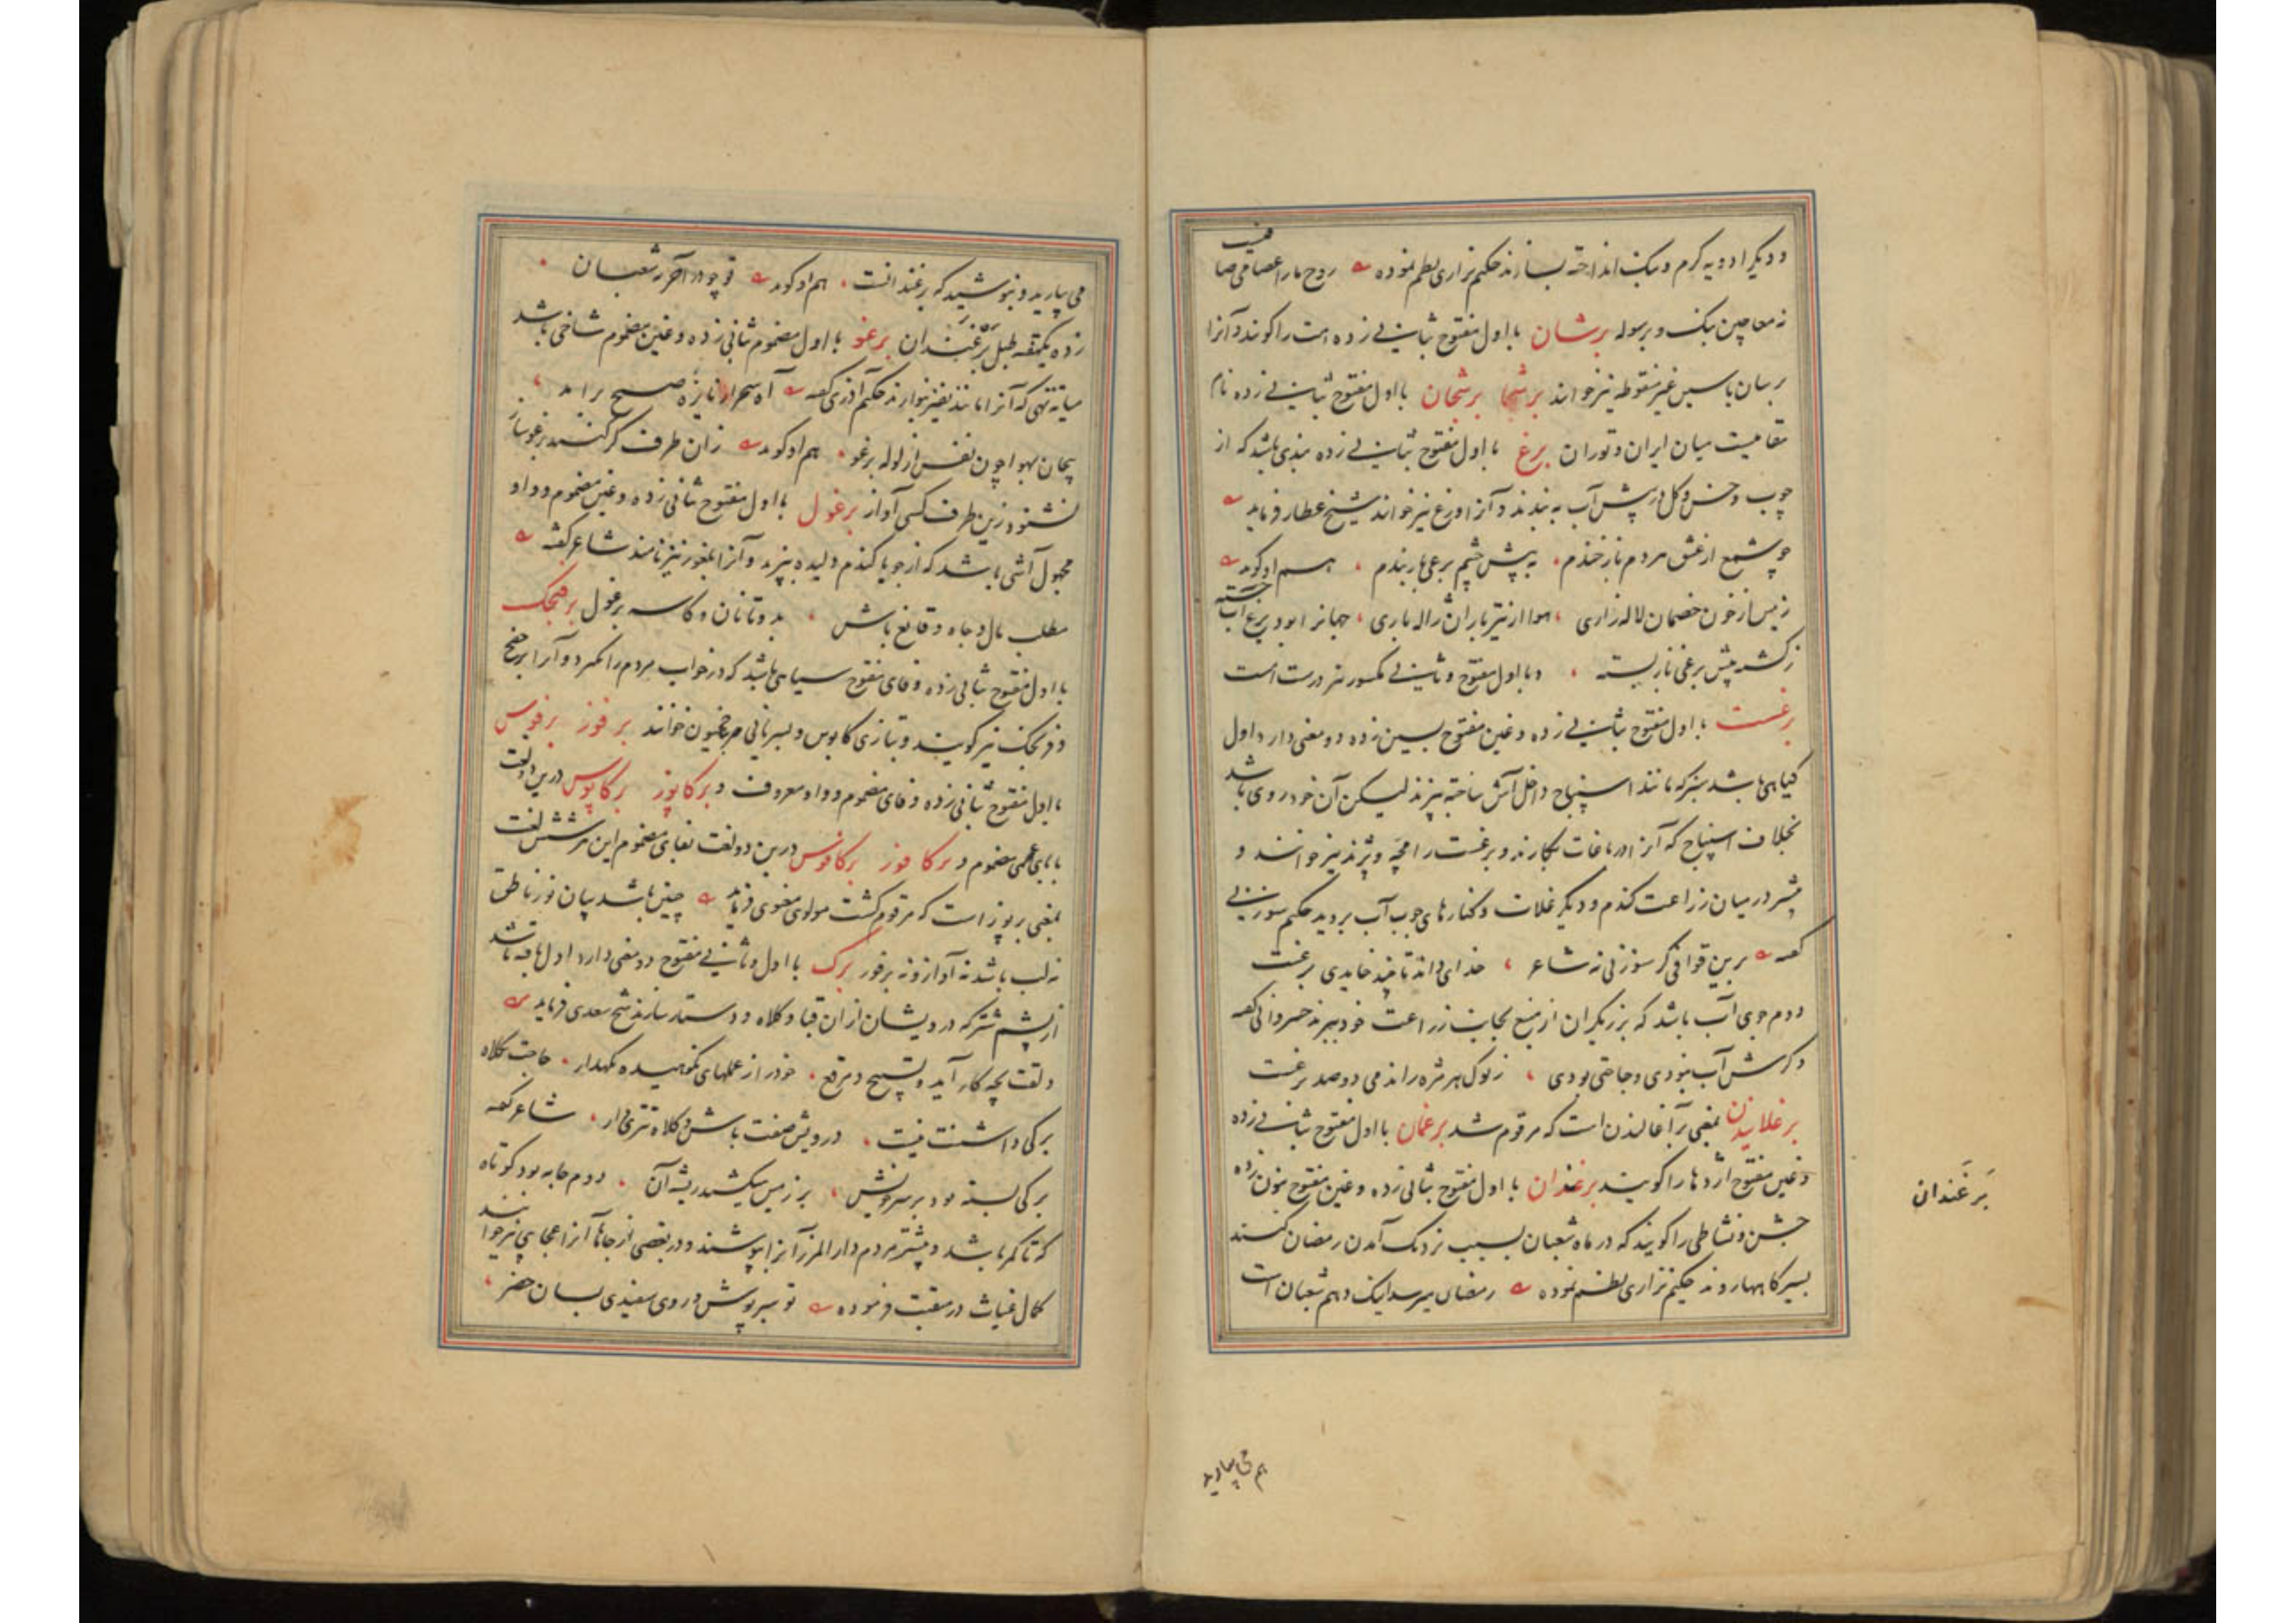 و دیگر ادویه گرم و بنک انداخته بسازند حکیم نزاری نظم نموده روح مارا عصا می صافیست
نه معاجین بنک و برسوله برشان با اول مفتوح بثانی زده امت را گویند و آنرا
برسان باسین غیر منقوطه نیز خوانند برشجا برشجان با اول مفتوح بثانی زده نام
مقامیست میان ایران و توران برغ با اول مفتوح بثانی زده بندی باشد که از
چوب و خس و گل در پیش آب به بندند و آنرا ورغ نیز خوانند شیخ عطار فرماید
چو شمع از عشق مردم باز خندم به پیش چشم برغی باز بندم هم او گوید
زمین از خون خصمان لاله زاری هوا از تیر باران ژاله باری جهانرا بود برغ آب جسته
ز کشته پیش برغی باز بسته و با اول مفتوح و ثانی مکسور نیز درست است
برغست با اول مفتوح بثانی زده و غین مفتوح بسین زده دو معنی دارد اول
گیاهی باشد سبز که مانند اسپناج داخل آش ساخته بپزند لیکن آن خودروی باشد
بخلاف اسپناج که آنرا در باغات بکارند و برغست را مچه و پژند نیز خوانند و
بیشتر در میان زراعت گندم و دیگر غلات و کنارهای جوب آب بروید حکیم سوزنی
گفته برین قوافی گر سوزنی نه شاعر خدای داند تا چند خایدی برغست
دوم جوی آب باشد که برزیگران از منبع بجانب زراعت خود ببرند خسروانی گفته
و گرش آب نبودی و حاجتی بودی ز نوک هر مژه راندمی دو صد برغست
برغلانیدن بمعنی برآغالیدن است که مرقوم شد برغمان با اول مفتوح بثانی زده
و غین مفتوح اژدها را گویند برغندان با اول مفتوح بثانی زده و غین مفتوح بنون زده
جشن و نشاطی را گویند که در ماه شعبان بسبب نزدیک آمدن رمضان کنند
بسیرگاهها روند حکیم نزاری نظم نموده رمضان میرسد اینک دهم شعبان است
بَرغَندان
می بیارید و بنوشید که برغندانست هم او گوید و چو در آخر شعبان
زده یکهفته طبل برغندان برغو با اول مضموم بثانی زده و غین مضموم شاخی باشد
میانه تهی که آنرا مانند نفیر نوازند حکیم آذری گفته آه سحر از نایژه صبح برآمد
پیچان بهوا چون نفس از لوله برغو هم او گوید زان طرف گر کنند برغو ساز
نشنود زین طرف کسی آواز برغول با اول مفتوح بثانی زده و غین مضموم و واو
مجهول آشی باشد که از جو یا گندم دلیده بپزند و آنرا بلغور نیز نامند شاعر گفته
مطلب مال و جاه و قانع باش بدو تا نان و کاسه برغول برفنجک
با اول مفتوح بثانی زده و فای مفتوح سیاهی باشد که در خواب مردم را بگیرد و آنرا برخفج
و فرنجک نیز گویند و بتازی کابوس و بسریانی خوانند برفوز برفوس
با اول مفتوح بثانی زده و فای مضموم و واو معروف و برکاپوز برکاپوس درین دو لغت
بابای عجمی مضموم و برکافوز برکافوس درین دو لغت بفای مضموم این هر شش لغت
بمعنی برپوز است که مرقوم گشت مولوی معنوی فرماید چنین باشد بیان نور ناطق
نه لب باشد نه آواز و نه برفوز برک با اول و ثانی مفتوح دو معنی دارد اول بافته باشد
از پشم شتر که درویشان از آن قبا و کلاه و دستار سازند شیخ سعدی فرماید
دلقت بچه کار آید و تسبیح و مرقع خود را ز عملهای نکوهیده نگهدار حاجت بکلاه
برکی داشتنت نیست درویش صفت باش و کلاه تتری دار شاعر گفته
برکی بسته بود بر سر و ریش بر زمین میکشید ریشه آن دوم جامه بود کوتاه
که تا کمر باشد و بیشتر مردم دارالمرز آنرا بپوشند و در بعضی از جاها آنرا نیز خوانند
کمال غیاث در منقبت فرموده تو سبز پوش و روی سفیدی بسان خضر